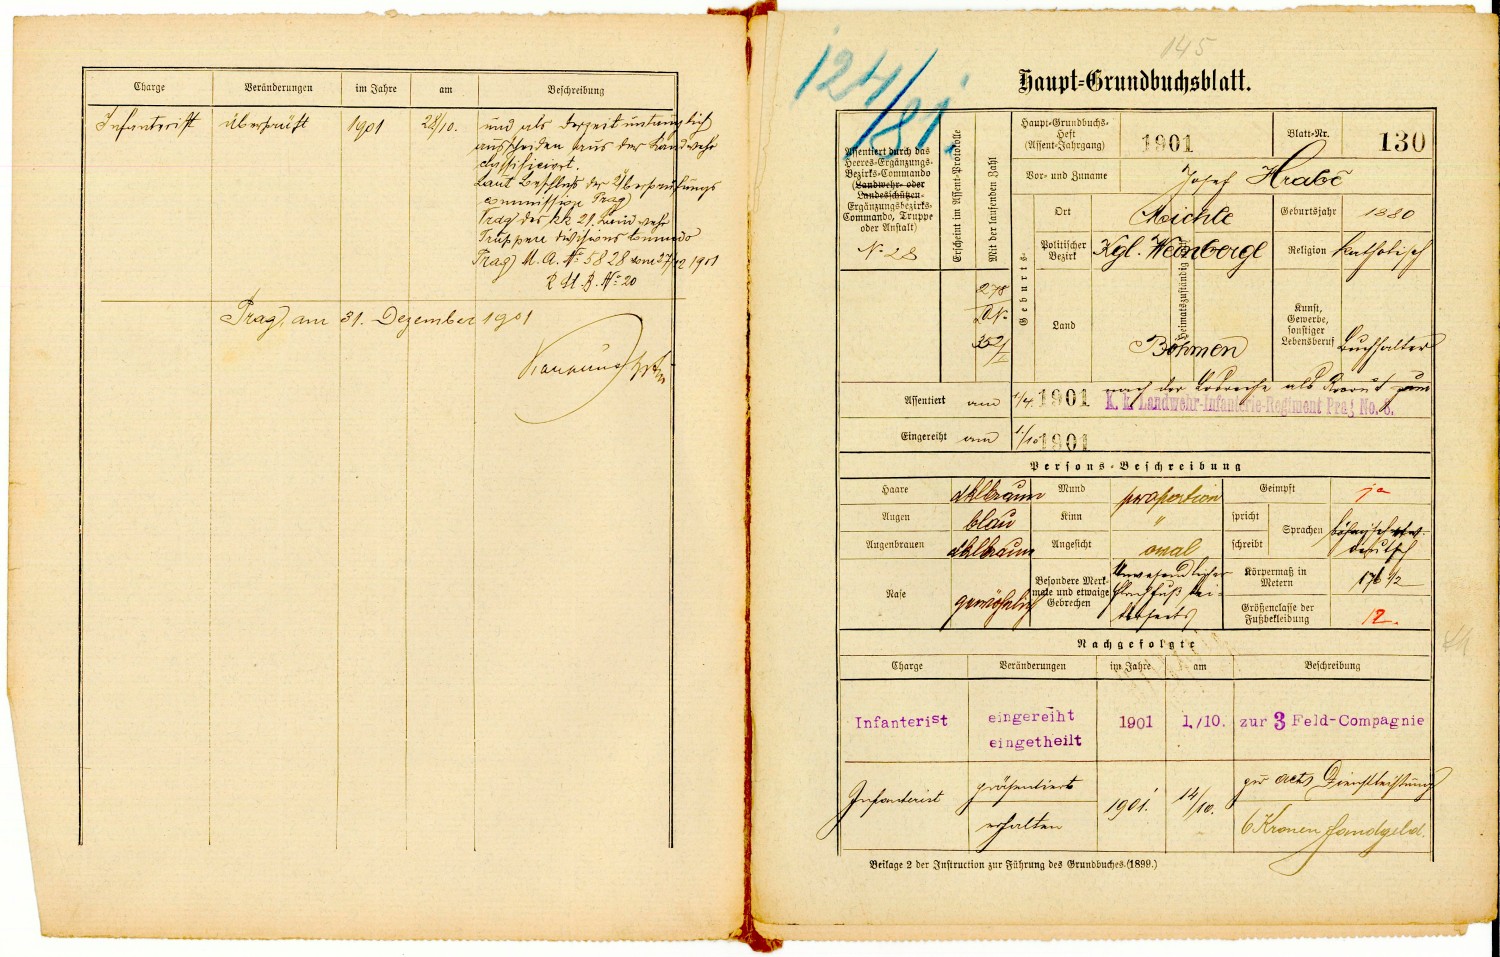 Charge Veränderungen im Jahre am Beschreibung
Infanterist überprüft 1901 28/10. und als derzeit untauglich
ausscheiden aus der Landwehr
classificirt.
Laut Beschluß der Überprüfungs
commission Prag
Prag des k.k. 21. Landwehr
Truppen divisions Comando
Prag M. A. No 5828 vom 27/12 1901
R. M. B. No 20
Prag, am 31. Dezember 1901
145
124/81.
Haupt-Grundbuchsblatt.
Assentiert durch das
Heeres-Ergänzungs-
Bezirks-Commando
(Landwehr- oder
Landesschützen-
Ergänzungsbezirks-
Commando, Truppe
oder Anstalt)
No 28
Erscheint im Assent-Protokolle
Mit der laufenden Zahl
278
352/I
Haupt-Grundbuchs-
Heft
(Assent-Jahrgang)
1901
Blatt-Nr.
130
Vor- und Zuname
Josef Hrabě
Geburts-
Ort
Michle
Geburtsjahr
1880
Politischer
Bezirk
Kgl. Weinberge
Heimatszuständig
Religion
katholisch
Land
Böhmen
Kunst,
Gewerbe,
sonstiger
Lebensberuf
Buchhalter
Assentiert am 1/4. 1901 nach der Losreihe als Recrut zum
K. k. Landwehr-Infanterie-Regiment Prag No. 8.
Eingereiht am 1./10 1901
Persons-Beschreibung
Haare dklbraun Mund proportion Geimpft ja
Augen blau Kinn " spricht
schreibt
Sprachen böhmisch u.
deutsch
Augenbrauen dklbraun Angesicht oval
Nase gewöhnlich
Besondere Merk-
male und etwaige
Gebrechen
Unwesendlicher
Plattfuß bei-
derseits
Körpermaß in
Metern
176 1/2
Größenclasse der
Fußbekleidung
12.
Nachgefolgte
Charge Veränderungen im Jahre am Beschreibung
Infanterist eingereiht
eingetheilt 1901 1./10. zur 3 Feld-Compagnie
Infanterist präsentiert 1901. 14/10. zur act. Dienstleistung
erhalten 6 Kronen Handgeld.
Beilage 2 der Instruction zur Führung des Grundbuches. (1899.)